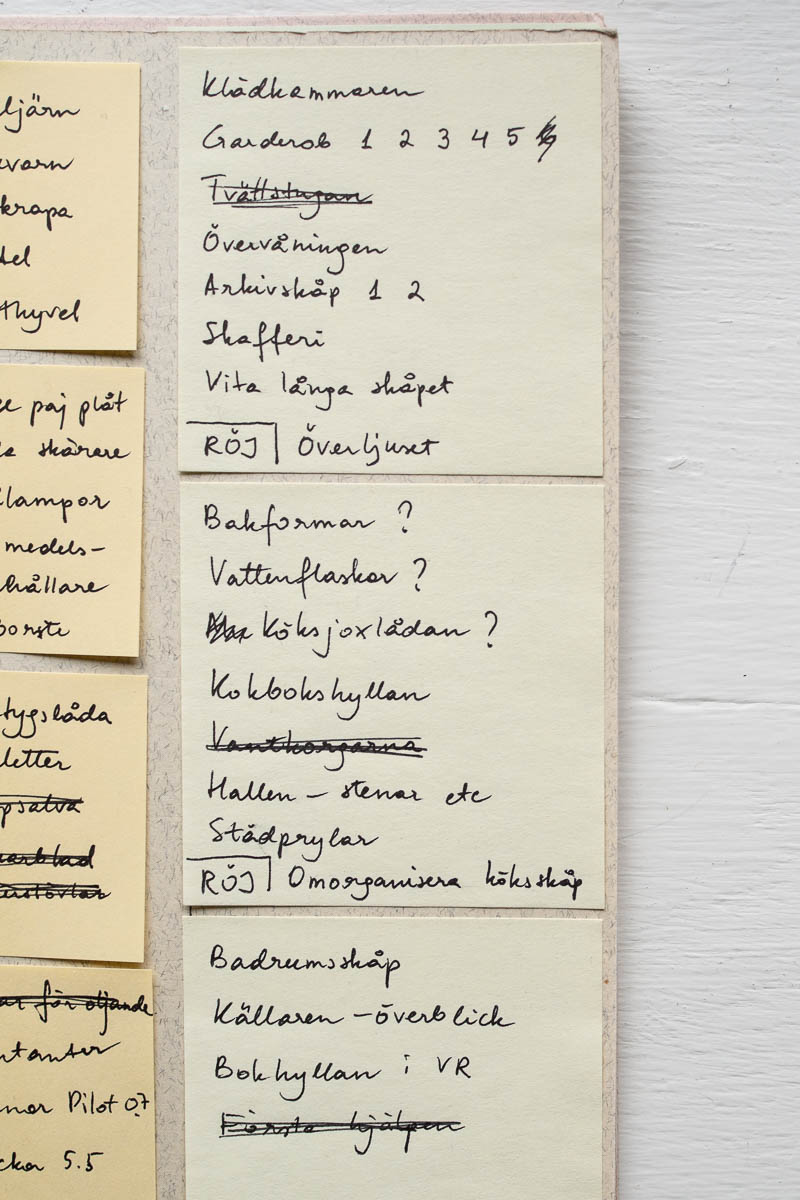 ljärn
varn
krapa
del
thyvel
paj plåt
skärare
lampor
medels-
hållare
borste
tygslåda
letter
psalva
för oljande
Pilot 0.7
5.5
Klädkammaren
Garderob 1 2 3 4 5
Tvättstugan
Övervåningen
Arkivskåp 1 2
Skafferi
Vita långa skåpet
RÖJ Överljuset
Bakformar ?
Vattenflaskor ?
Köksjoxlådan ?
Kokbokshyllan
Vantkorgarna
Hallen – stenar etc
Städprylar
RÖJ Omorganisera köksskåp
Badrumsskåp
Källaren – överblick
Bokhyllan i VR
Första hjälpen